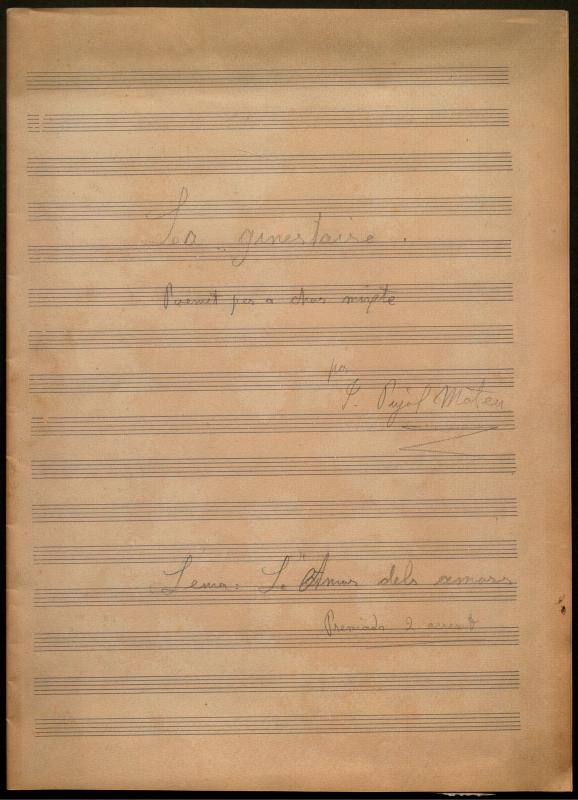 La ginestaire.
Poemet per a chor mixte
por
J. Pujol Mateu
Lema: L'Amor dels amors
Premiada